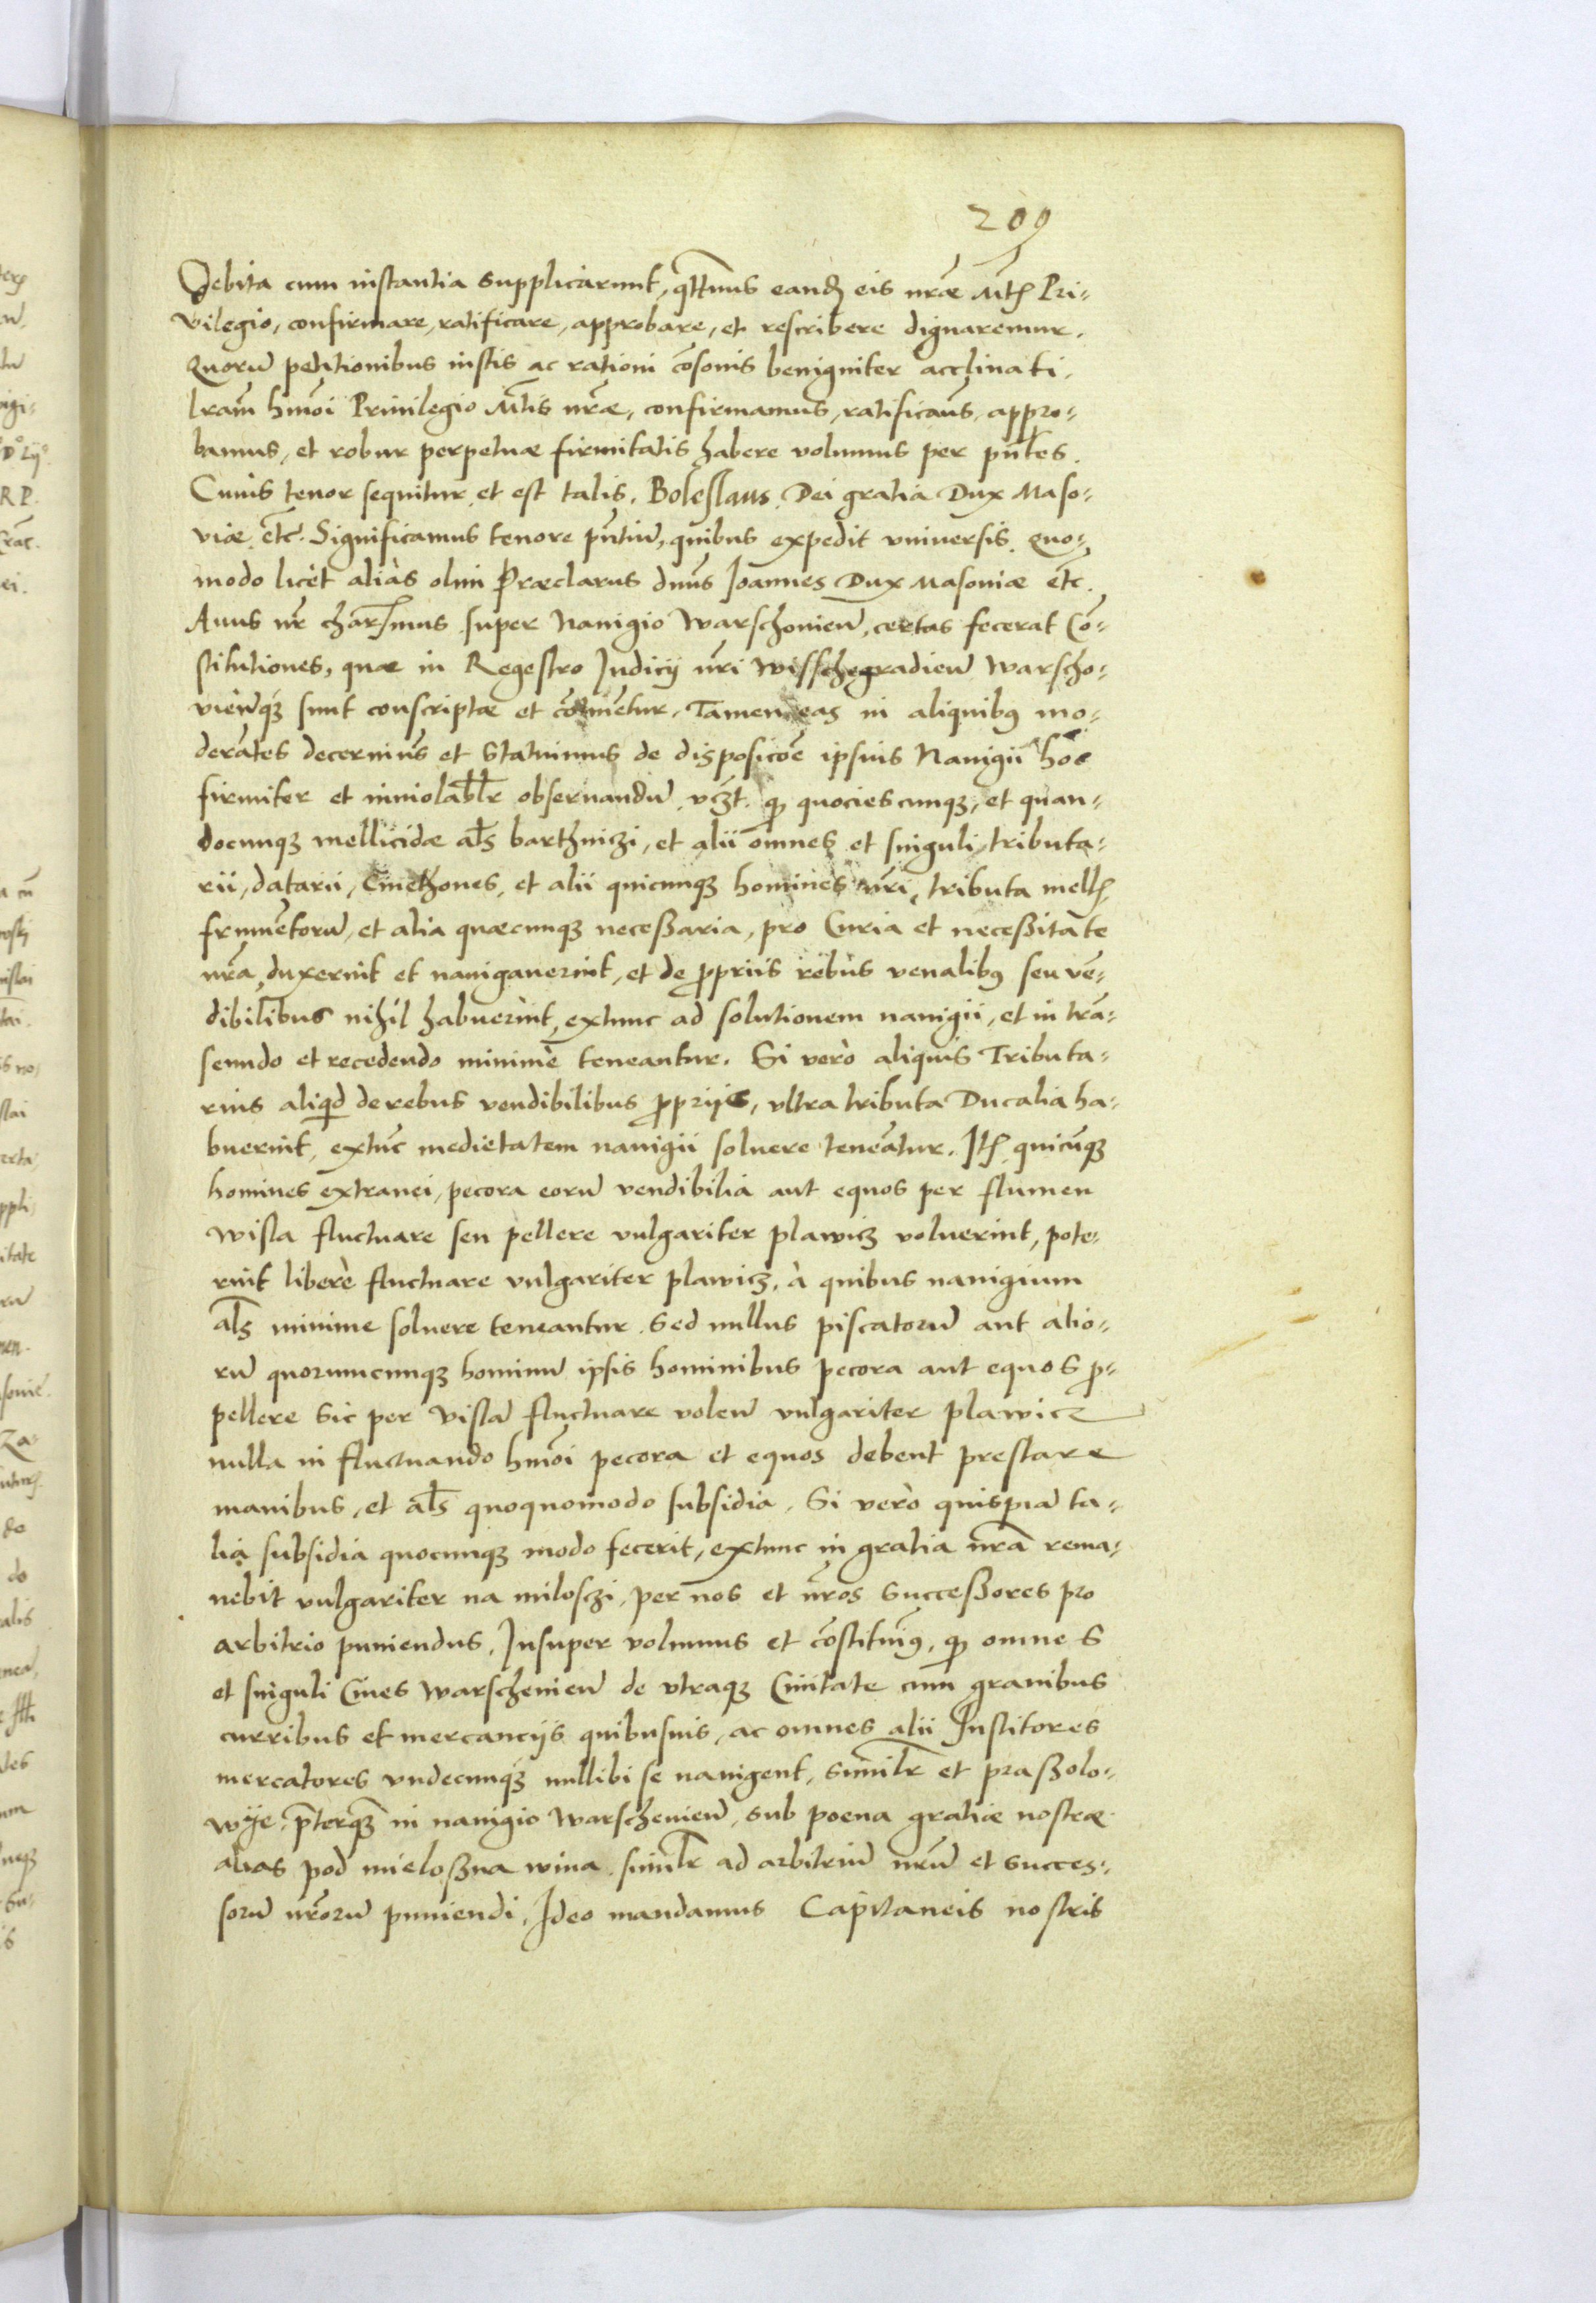 209
Debita cum instantia supplicarunt, qttenus eandẽ eis nrãe Mtis Pri-
vilegio, confirmare, ratificare, approbare, et rescribere dignaremur.
Quorũ petitionibus iustis ac rationi cõsonis benigniter acclinati,
lram hmõi Priuilegio Mtis nrãe, confirmamus, ratificaũs, appro-
bamus, et robur perpetuæ firmitatis habere volumus per pñtes.
Cuius tenor sequitur et est talis. Boleslaus Dei gratia Dux Maso-
viæ etc. Significamus tenore pñtiũ, quibus expedit vniversis, Quo-
modo licèt aliàs olim Præclarus dnũs Ioannes Dux Masouiæ etc.
Auus nr̃ charissmus super Nauigio Warschouieñ, certas fecerat Cõ-
stitutiones, quæ in Regestro Iudicij nr̃i Wisschegradieñ Warscho-
vieñq̃ꝫ sunt conscriptæ et cõtinẽtur, Tamen eas in aliquibꝰ mo-
derãtes decerniũs et Statuimus de disposicõe ipsius Nauigii hoc
firmiter et inuiolablr̃ obseruandũ, vcꝫt. qꝫ quociescunqꝫ, et quan-
docunqꝫ mellicidæ als̃ barthniczi, et alii omnes et singuli, tributa-
rii, datarii, Cmethones, et alii quicunqꝫ homines nr̃i, tributa mellẽ
frumẽtorũ, et alia quæcunqꝫ necessaria, pro Curia et necessitate
nrã, duxerint et nauigauerint, et de propriis rebus venalibꝰ seu vẽ-
dibilibus nihil habuerint, extunc ad solutionem nauigii, et in trã-
seundo et recedendo minimè teneantur. Si verò aliquis Tributa-
rius aliqd de rebus vendibilibus proprijs, vltra tributa Ducalia ha-
buerint, extũc medietatem nauigii soluere teneãtur. Itẽ quicũqꝫ
homines extranei, pecora eorũ vendibilia aut equos per flumen
Wisla fluctuare seu pellere vulgariter plawicz voluerint, pote-
rint liberè fluctuare vulgariter plawicz, à quibus nauigium
als̃ minime soluere teneantur. Sed nullus piscatorũ aut alio-
rũ quorumcunqꝫ hominũ ipsis hominibus pecora aut equos p-
pellere sic per Vislã fluctuare voleñ vulgariter plawicz
nulla in fluctuando hmõi pecora et equos debent prestare
manibus, et als̃ quoquomodo subsidia. Si verò quispiã ta-
lia subsidia quocunqꝫ modo fecerit, extunc in gratia nrã rema-
nebit vulgariter na miloschi, per nos et nr̃os successores pro
arbitrio puniendus. Insuper volumus et cõstituimꝰ, qꝫ omnes
et singuli Ciues Warschenieñ de vtraqꝫ Ciuitate cum grauibus
curribus et mercancijs quibusuis, ac omnes alii Institores
mercatores vndecunqꝫ nullibi se nauigent, similr̃ et prassolo-
wye, p̃terqꝫ in nauigio Warschenieñ, sub poena gratiæ nostræ
alias pod mielossna wina, similr̃ ad arbitriũ nrũm et succes-
sorũ nrõrũ puniendi. Ideo mandamus Capitaneis nostris